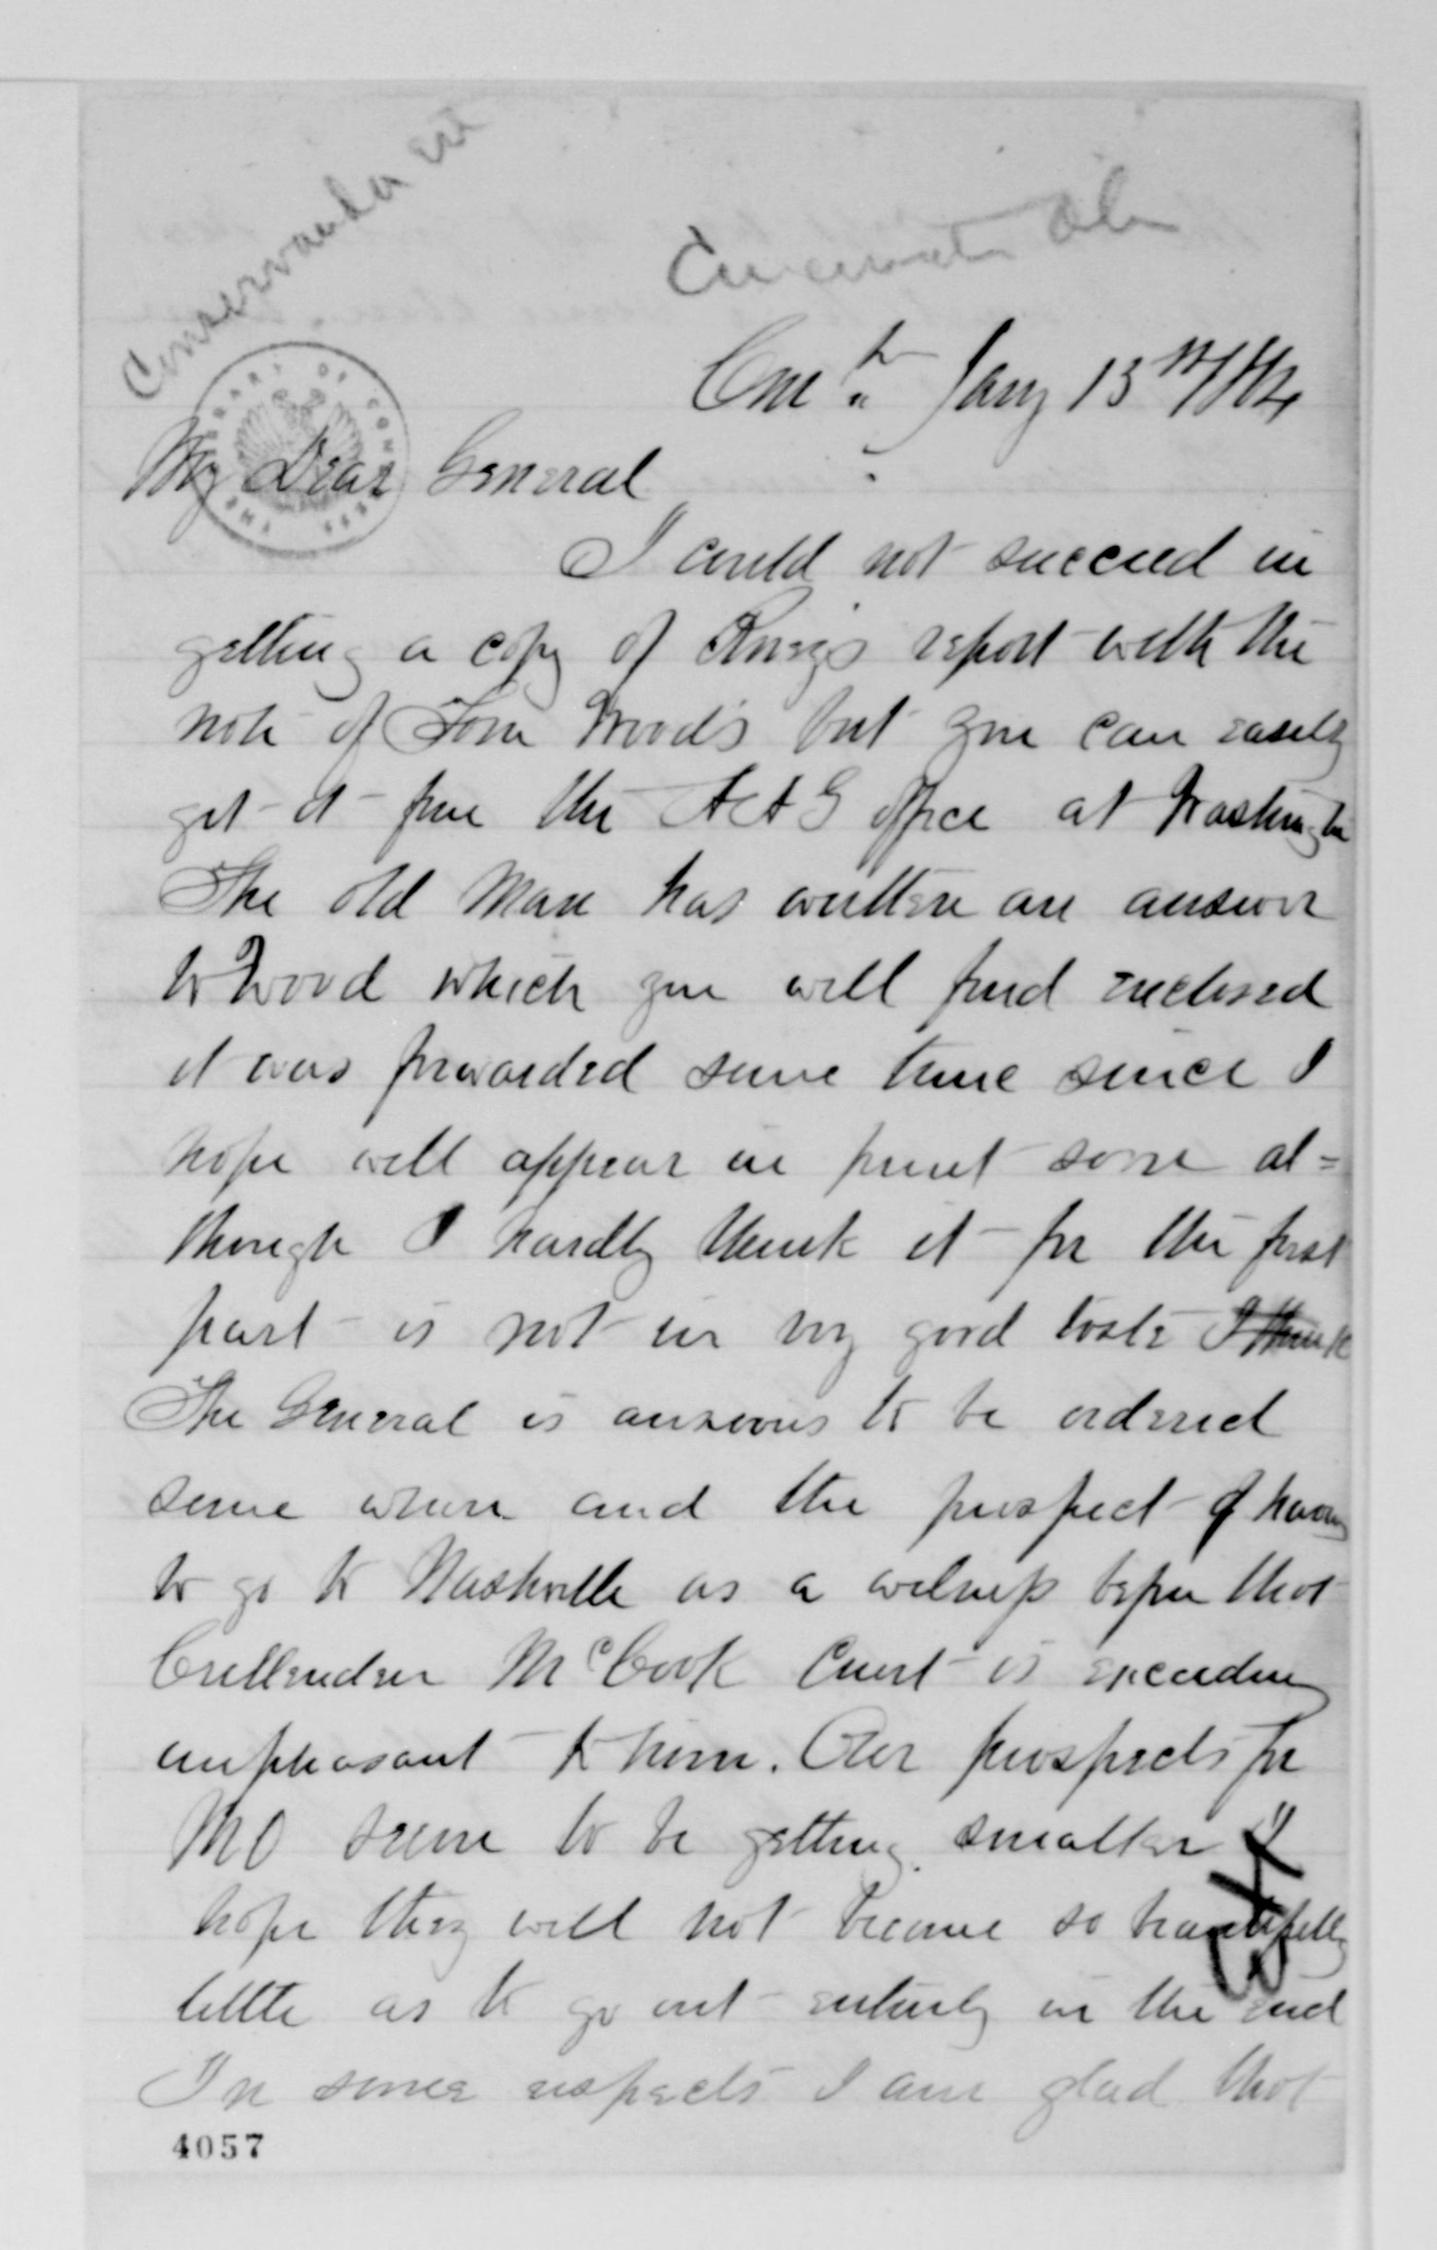 Cincinnati Ohio
Cin. Jany 13th/64
THE LIBRARY OF CONGRESS
My Dear General
I could not succeed in
getting a copy of Rosey's report with the
note of Tom Wood's but you can easily
get it from the A A G office at Washingtn
The old man has written an answer
to Wood which you will find enclosed
it was forwarded some time since I
hope will appear in print soon al=
though I hardly think it for the first
part is not in vry good taste I think
The General is anxious to be ordered
some where and the prospect of having
to go to Nashville as a witness before that
Crittenden McCook Court is exceeding
unpleasant to him. Our prospects for
MO seem to be getting smaller I
hope they will not become so beautifully
little as to go out entirely in the end
In some respects I am glad that
4057